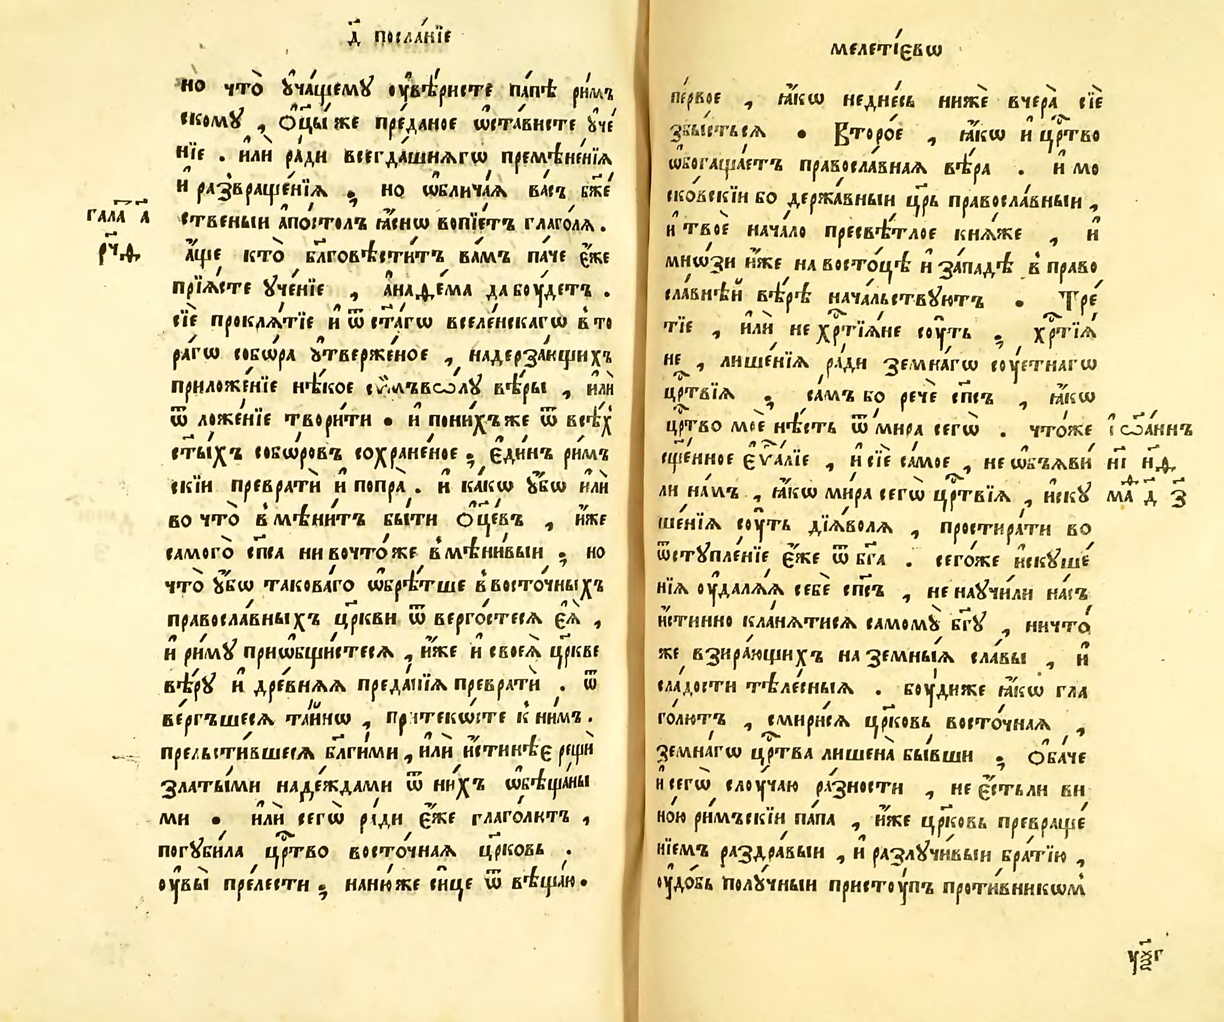 д҃ посла́нїе
но что̀ ᲂу҆ча́щемꙋ ᲂувѣ́ристе па́пѣ ри́мъ
скомꙋ , Ѻ҆ц҃ы́ же преда́ное ѡ҆ста́висте ᲂу҆че́
нїе . и҆лѝ ра́ди всегда́шнѧгѡ премѣне́нїѧ
и҆ развраще́нїѧ ; но ѡ҆блича́ѧ ва́съ бж҃е́
гала҃ а҃
ственыи а҆по́столъ ꙗ҆́снѡ вопїе́тъ глаго́лѧ .
рч҃ѳ
а҆́ще кто̀ бл҃говѣсти́тъ ва́мъ па́че є҆́же
прїѧ́сте ᲂу҆че́нїе , а҆наѳема да бꙋ́детъ .
сїѐ проклѧ́тїе и҆ ѿ ст҃а́гѡ вселе́нскагѡ в҆то
ра́гѡ собѡ́ра ᲂу҆тверже́ное , надерза́ющихъ
приложе́нїе нѣ́кое сѵ́мъвѡлꙋ вѣ́ры , и҆лѝ
ѿ ложе́нїе твори́ти . и҆ пони́хъ же ѿ всѣ́х
ст҃ы́хъ собѡ́ровъ сохране́ное ; є҆ди́нъ ри́мъ
скїи превратѝ и҆ попра̀ . и҆ ка́кѡ ᲂу҆́бѡ и҆лѝ
во что̀ в҆мѣни́тъ бы́ти Ѻ҆ц҃е́въ , и҆́же
самого̀ сп҃са ни во что́же в҆мѣни́выи ; но
что̀ ᲂу҆́бѡ такова́го ѡ҆брѣ́тше в҆восто́чныхъ
правосла́вныхъ цр҃кви ѿ верго́стесѧ є҆ѧ̀ ,
и҆ ри́мꙋ прио҆бщи́стесѧ , и҆́же и҆ своеѧ̀ цр҃кве
вѣ́рꙋ и҆ дре́внѧѧ преда́нїѧ превратѝ . ѿ
ве́ргъшесѧ та́йнѡ , притеко́сте к҆ ни́мъ .
прельсти́вшесѧ бл҃ги́ми , и҆лѝ и҆́стинѣе рещѝ
златы́ми наде́ждами ѿ ни́хъ ѡ҆бѣща́ны
ми . и҆лѝ сегѡ̀ ра́ди є҆́же глаго́лютъ ,
погꙋби́ла црⷭ҇тво восто́чная цр҃ковь .
ᲂувы̀ пре́лести ; на ню́же си́це ѿ вѣща́ю .
мелетїевѡ
пе́рвое , ꙗ҆́кѡ недне́сь нижѐ вчера̀ сїѐ
збы́стьсѧ . Второ́е , ꙗ҆́кѡ и҆ црⷭ҇тво
ѡ҆богаща́етъ правосла́вная вѣ́ра . и҆ мо
ско́вскїи бо держа́вныи цр҃ь правосла́вныи ,
и҆ твоѐ нача́ло пресвѣ́тлое кнѧ́же , и҆
мнѡ́зи и҆́же на восто́цѣ и҆ за́падѣ в҆ право
сла́внѣй вѣ́рѣ нача́льствꙋютъ . Тре́
тїе , и҆лѝ не хрⷭ҇тїѧ́не сꙋ́ть ; хрⷭ҇тїѧ́
не , лише́нїѧ ра́ди земна́гѡ сꙋ́етнагѡ
црⷭ҇твїѧ ; са́мъ бо речѐ сп҃съ , ꙗ҆́кѡ
црⷭ҇тво моѐ нѣ́сть ѿ ми́ра сегѡ̀ . что́же
і҆ѡа́ннъ
сщ҃е́нное є҆ѵⷢ҇алїе , и҆ сїѐ са́мое , не ѡ҆бъѧви́
н҃і н҃ѳ
ли на́мъ , ꙗ҆́кѡ ми́ра сегѡ̀ црⷭ҇твїѧ , и҆скꙋ
маⷴ д҃ з҃
ше́нїѧ сꙋ́ть дїѧ́волѧ , простира́ти во
ѿстꙋпле́нїе є҆́же ѿ бг҃а . сего́же и҆скꙋше́
нїѧ ᲂудалѧ́ѧ себѐ сп҃съ , не наꙋчи́ли на́съ
и҆́стинно кла́нѧтисѧ самомꙋ̀ бг҃ꙋ , ничто́
же взира́ющихъ на земны́ѧ сла́вы , и҆
сла́дости тѣле́сныѧ . бꙋ́ди же ꙗ҆́кѡ гла
го́лютъ , смири́сѧ цр҃ковь восто́чная ,
земна́гѡ црⷭ҇тва лишена̀ бы́вши ; Ѻ҆ба́че
и҆ сегѡ̀ слꙋ́чаю ра́зности , не є҆́стьли ви
но́ю ри́мъскїи па́па , и҆́же цр҃ковь превраще́
нїемъ раздра́выи , и҆ разлꙋчи́выи бра́тїю ,
ᲂудо́бь полꙋ́чныи пристꙋ́пъ проти́вникѡм
ух҃г